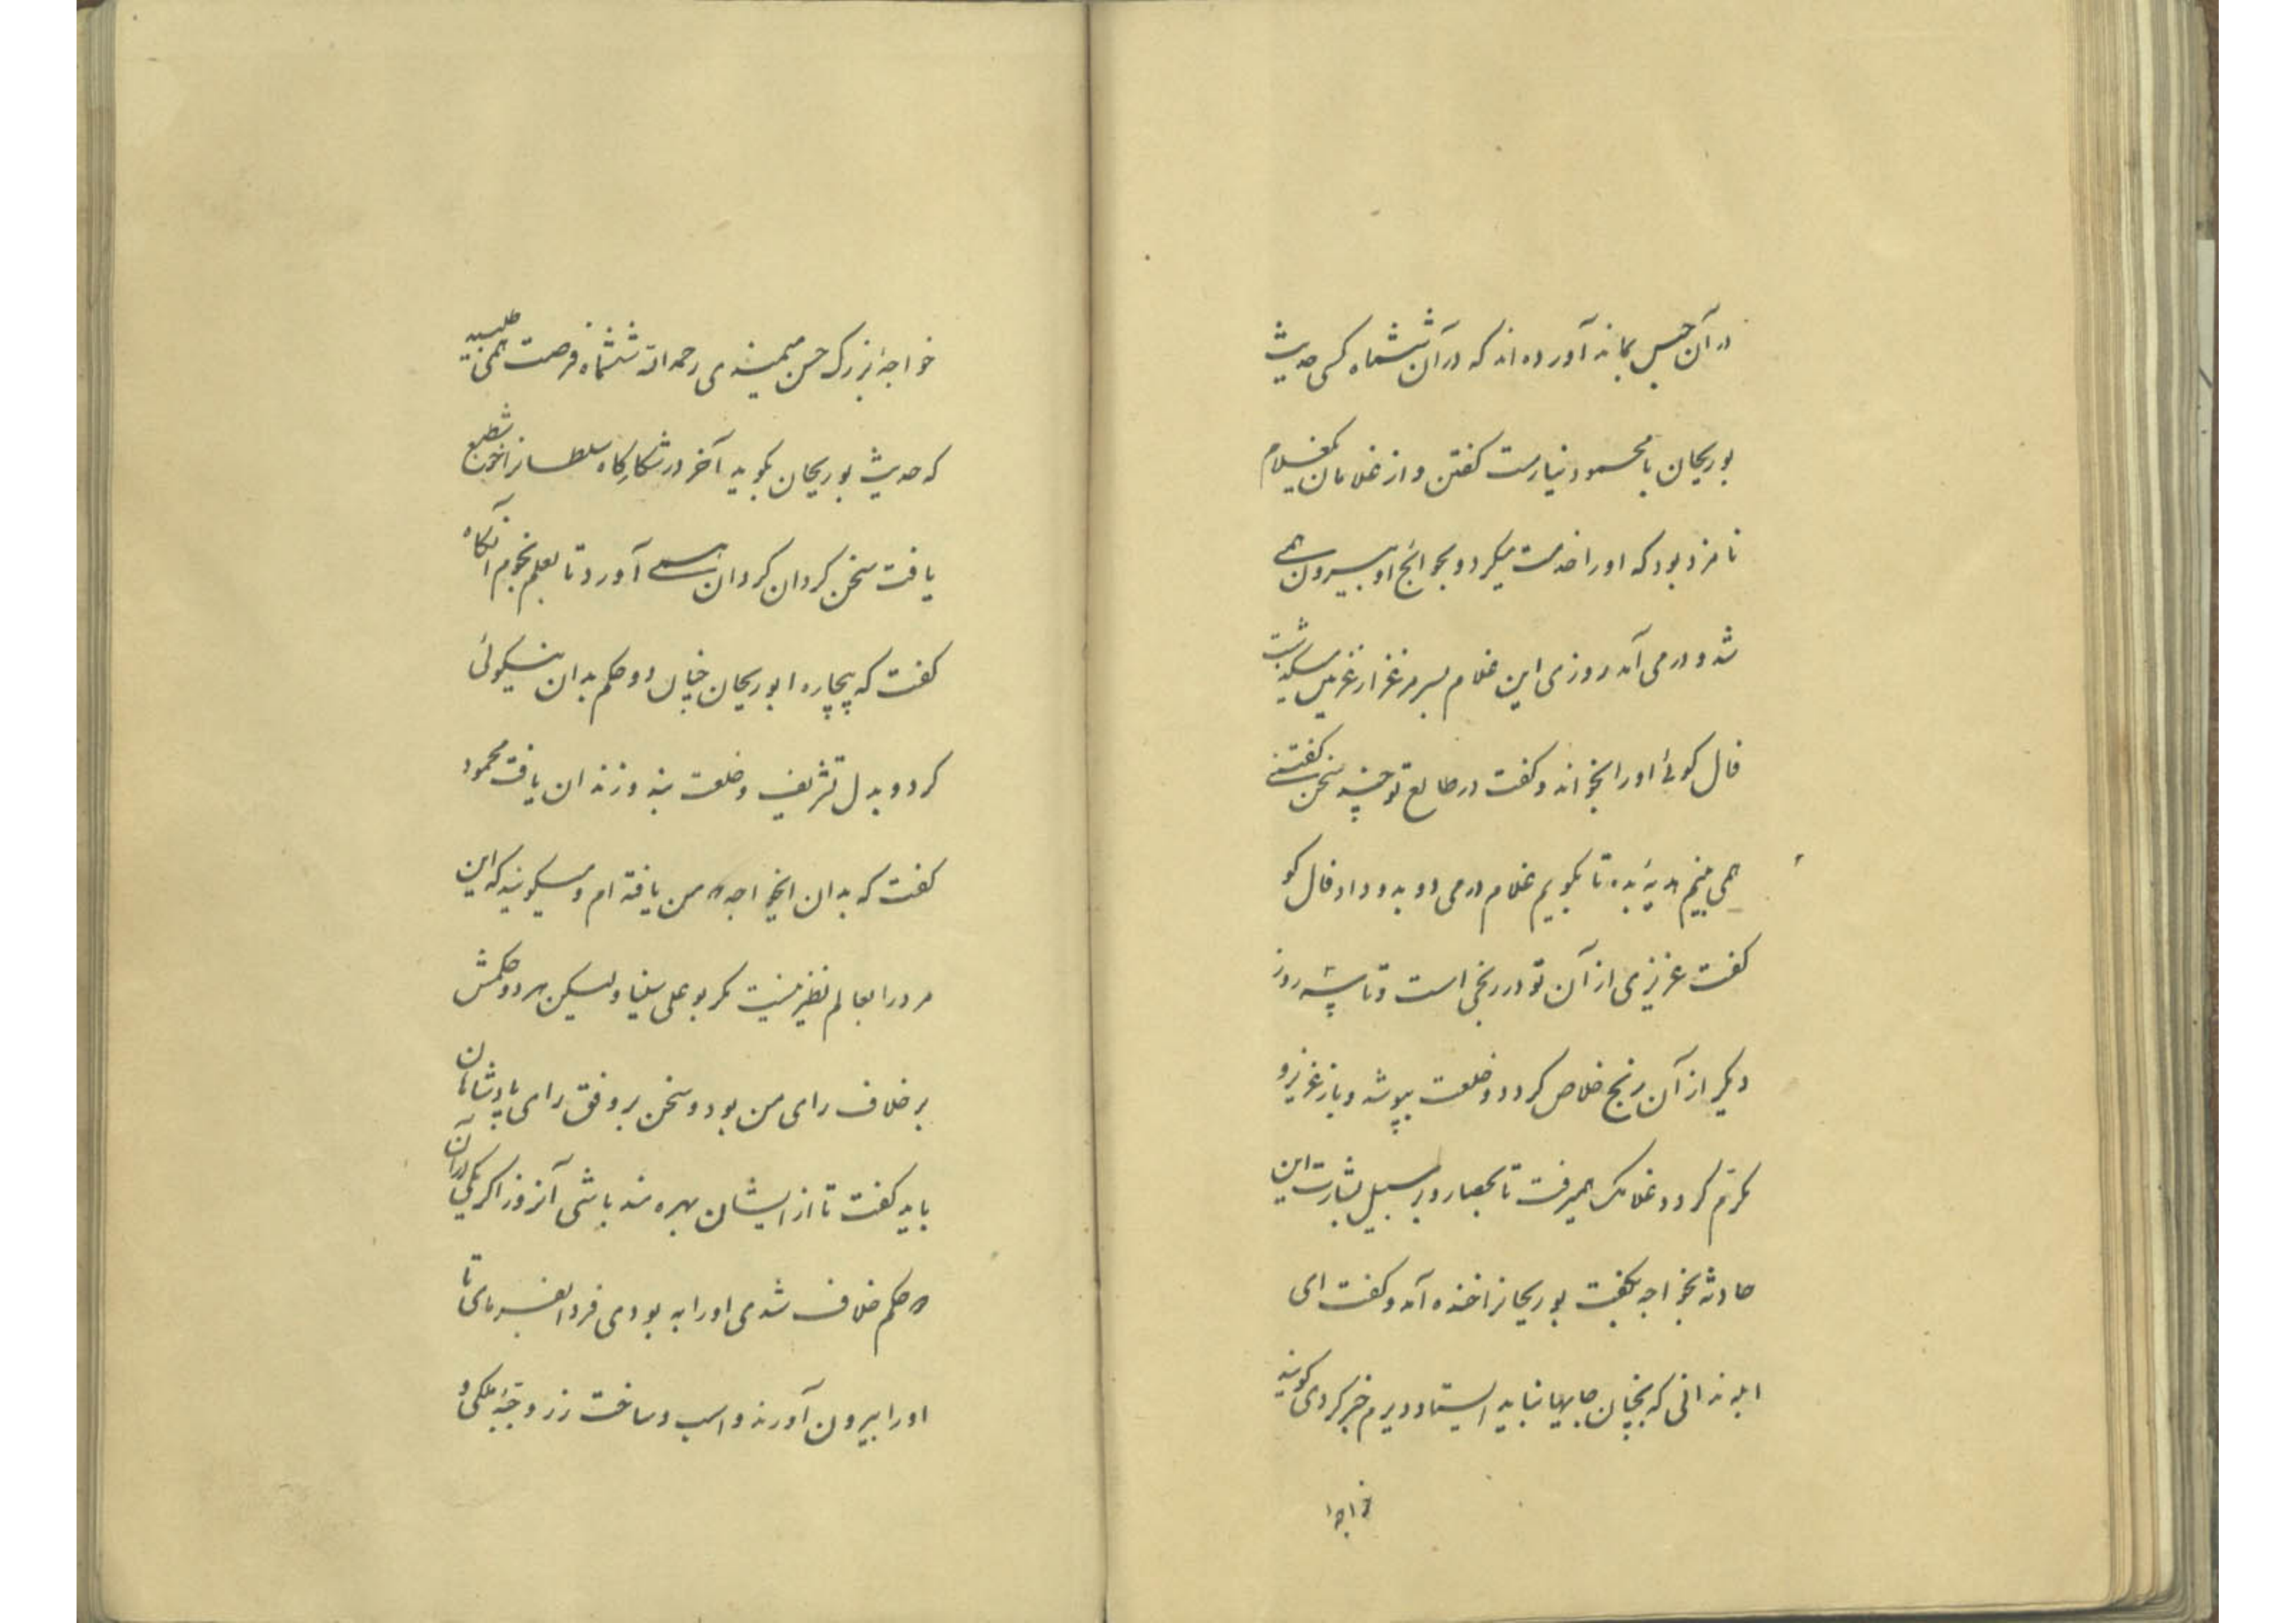 در آن حبس بماند آورده‌اند که در آن ششماه کسی حدیث
بوریحان با محمود نیارست کفتن و از غلامان یکغلام
نامزد بود که او را خدمت میکرد و بحوائج او بیرون همی
شد و درمی آمد روزی این غلام بسر مرغزار غزنین میکذشت
فال کوئی او را بخواند و کفت در طالع تو چند سخن کفتنی
همی بینم هدیهٔ بده تا بکویم غلام درمی دو بدو داد فال کو
کفت عزیزی از آن تو در رنجی است و تا سه روز
دیکر از آن رنج خلاص کردد و خلعت بپوشد و باز عزیز و
مکرّم کردد غلامک همیرفت تا بحصار و بر سبیل بشارت این
حادثه بخواجه بکفت بوریحانرا خنده آمد و کفت ای
ابله ندانی که بچنان جایها نباید ایستاد و دیرم خبر کردی کویند
خواجهٔ
خواجهٔ بزرک حسن میمندی رحمه الله ششماه فرصت همی طلبید
که حدیث بوریحان بکوید آخر در شکارکاه سلطانرا خوش طبع
یافت سخن کردان کردان همی آورد تا بعلم نجوم آنکاه
کفت که بیچاره ابوریحان چنان دو حکم بدان نیکوئی
کرد و بدل تشریف و خلعت بند و زندان یافت محمود
کفت که بدان ایخواجه که من یافته ام و میکویند که این
مرد را بعالم نظیر نیست مکر بوعلی سینا ولیکن هر دو حکمش
برخلاف رای من بود و سخن بر وفق رای پادشاهان
باید کفت تا از ایشان بهره مند باشی آنروز اکر یکی از آن
دو حکم خلاف شدی او را به بودی فردا بفرمای تا
او را بیرون آورند و اسب و ساخت زر و جبّهٔ ملکی و